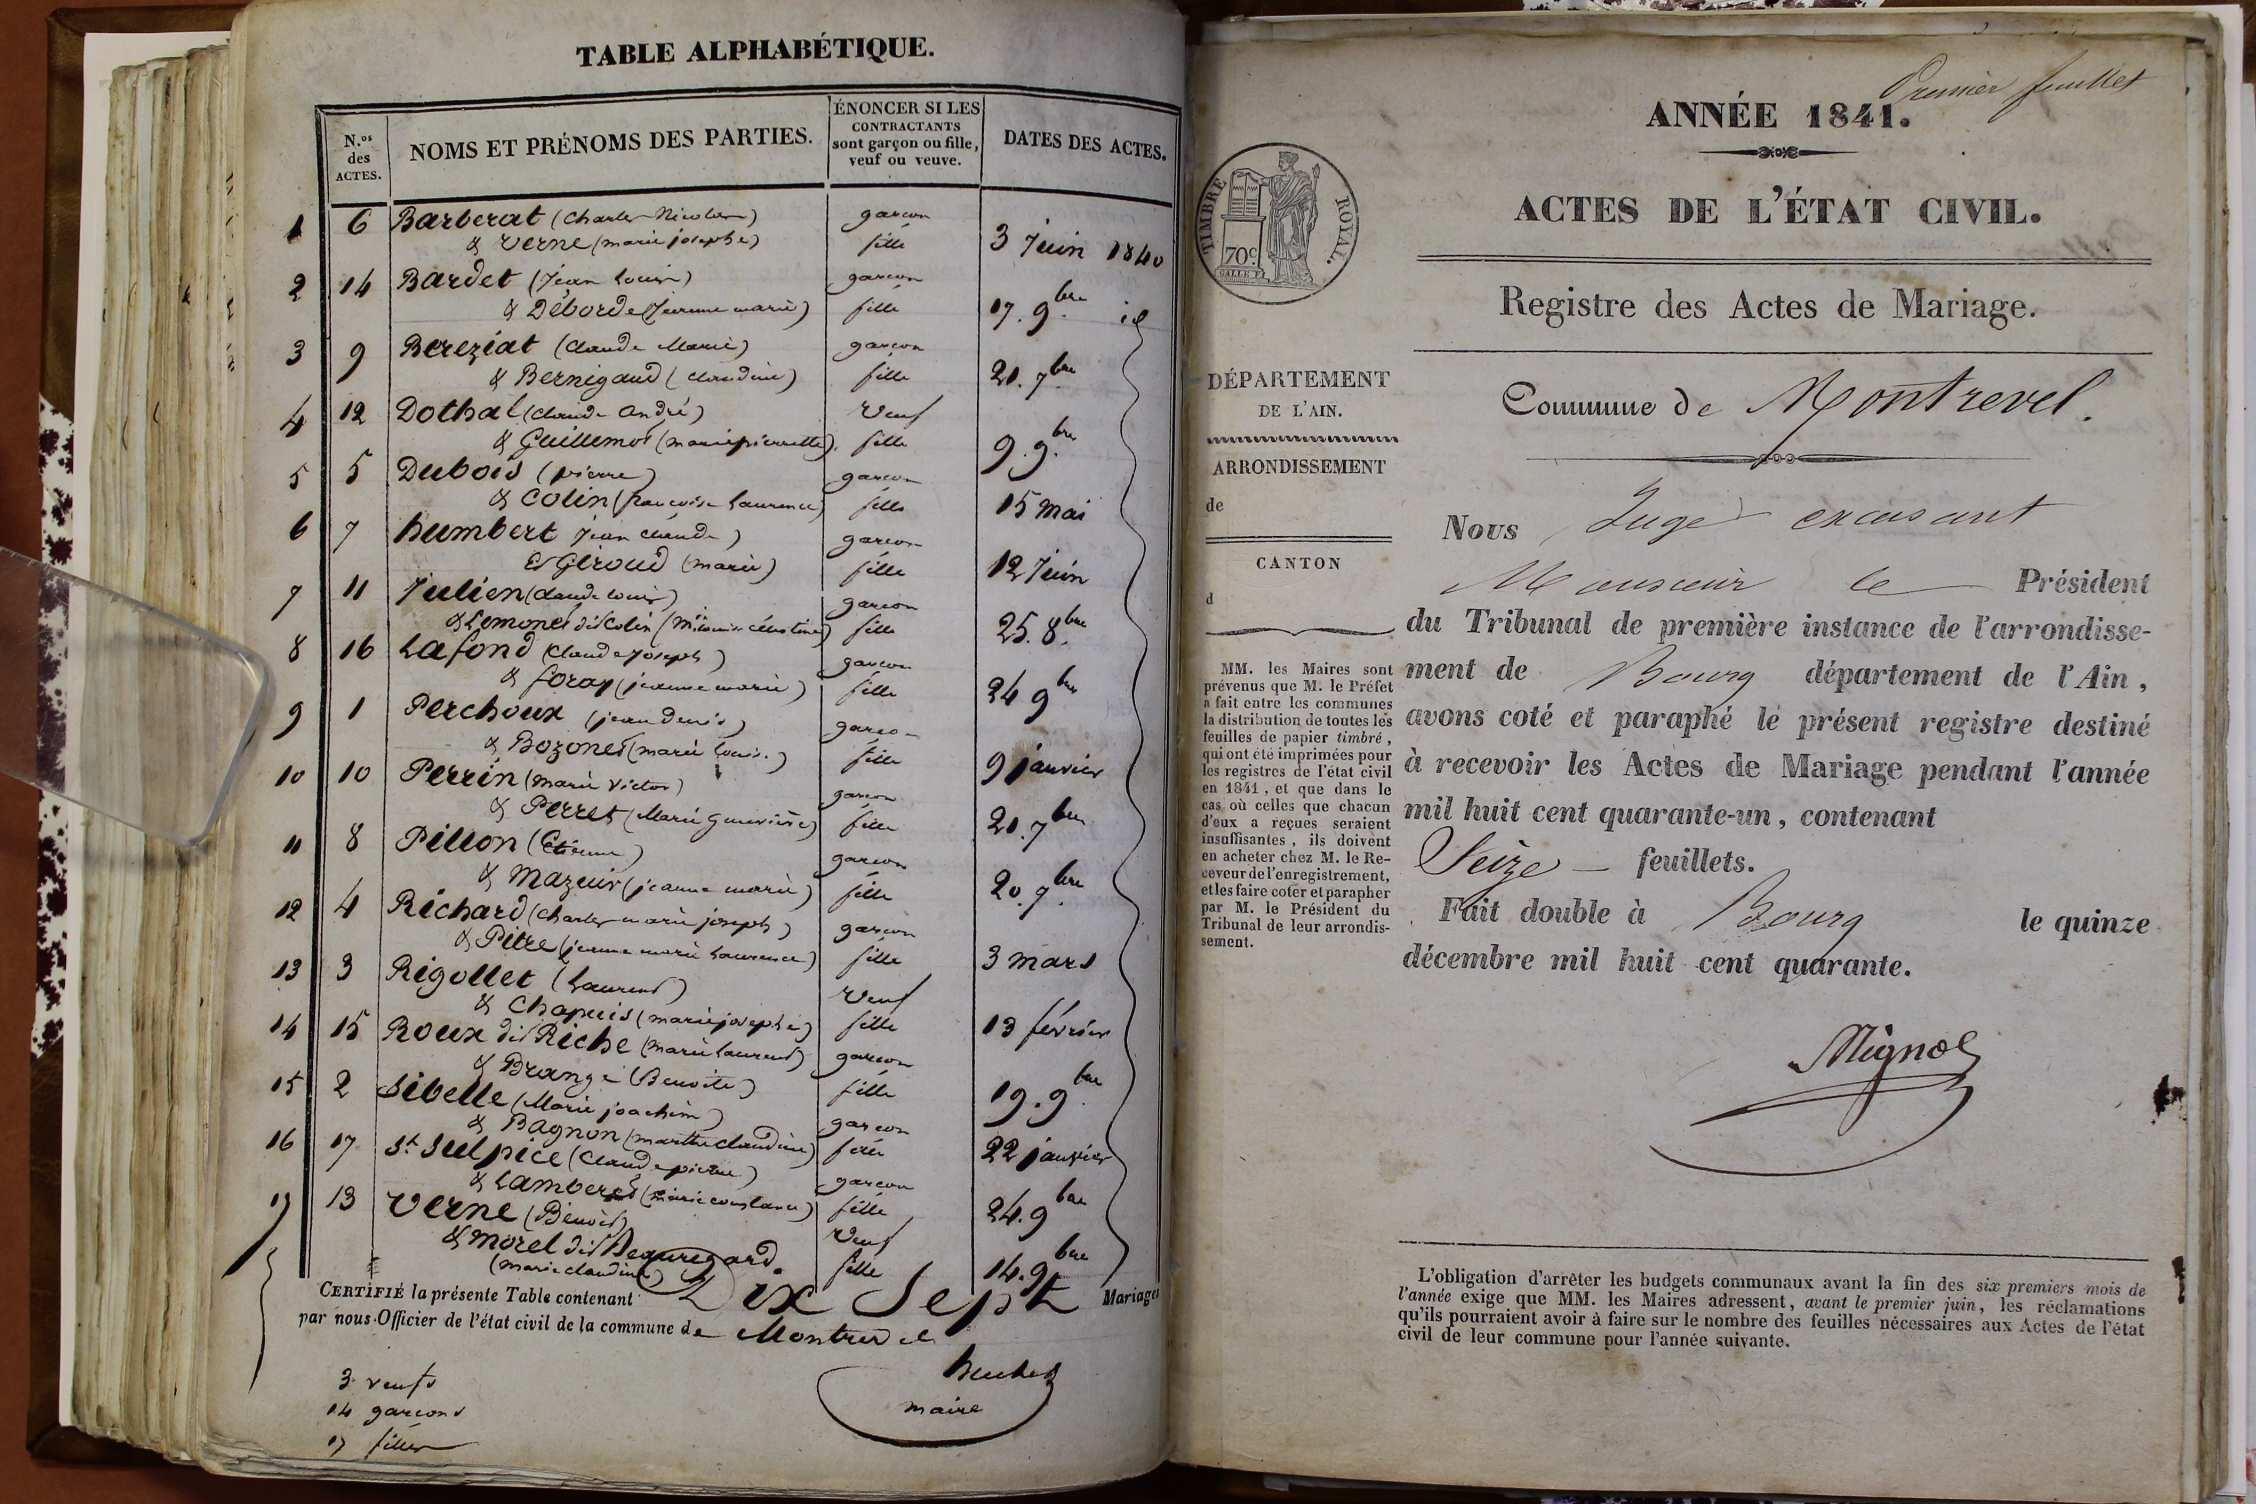 TABLE ALPHABÉTIQUE.
N.os des ACTES.
NOMS ET PRÉNOMS DES PARTIES.
ÉNONCER SI LES
CONTRACTANTS
sont garçon ou fille,
veuf ou veuve.
DATES DES ACTES.
1 6 Barberat (Charles Nicolas) garcon
& Verne (marie josephe) fille 3 Juin 1840
2 14 Bardet (Jean Louis) garcon
& Déborde (Jeanne marie) fille 17. 9bre id
3 9 Bereziat (Claude Marie) garcon
& Bernigaud (Claudine) fille 21. 7bre
4 12 Dothal (Claude André) veuf
& Guillemot (marie pierrette) fille 9. 9bre
5 5 Dubois (pierre) garcon
& Colin (francoise Laurence) fille 15 mai
6 7 humbert Jean Claude) garcon
& Giroud (marie) fille 12 Juin
7 11 Julien (Claude Louis) garcon
& Lemonet dit Colin (celestine) fille 25. 8bre
8 16 Lafond (Claude Joseph) garcon
& foray (jeanne marie) fille 24 9bre
9 1 Perchoux (jean denis) garcon
& Bozonet (marie Louise) fille 9 janvier
10 10 Perrin (marie Victor) garcon
& Perret (Marie Genevieve) fille 21. 7bre
11 8 Pillon (Etienne) garcon
& Mazuir (jeanne marie) fille 20. 7bre
12 4 Richard (Charles marie joseph) garcon
& Pitre (jeanne marie Laurence) fille 3 mars
13 3 Rigollet (Laurent) veuf
& Chapuis (marie josephe) fille 13 février
14 15 Roux dit Riche (marie Laurent) garcon
& Brange (Benoite) fille 19. 9bre
15 2 Sibelle (Marie joachim) garcon
& Bagnon (marthe Claudine) fille 22 janvier
16 17 St Sulpice (Claude pierre) garcon
& Lamberet (marie constance) fille 24. 9bre
17 13 Verne (Benoit) veuf
& Morel dit Beauregard.
(marie claudine) fille 14. 9bre
CERTIFIÉ la présente Table contenant Dix Sept Mariages
par nous Officier de l'état civil de la commune de Montrevel
3 veufs
14 garcons
17 filles
maire
Premier feuillet
ANNÉE 1841.
ACTES DE L'ÉTAT CIVIL.
TIMBRE ROYAL.
70c.
Registre des Actes de Mariage.
Commune de Montrevel.
DÉPARTEMENT
DE L'AIN.
ARRONDISSEMENT
de
CANTON
d
MM. les Maires sont
prévenus que M. le Préfet
a fait entre les communes
la distribution de toutes les
feuilles de papier timbré,
qui ont été imprimées pour
les registres de l'état civil
en 1841, et que dans le
cas où celles que chacun
d'eux a reçues seraient
insuffisantes, ils doivent
en acheter chez M. le Re-
ceveur de l'enregistrement,
et les faire coter et parapher
par M. le Président du
Tribunal de leur arrondis-
sement.
Nous Juge excusant
Monsieur le Président
du Tribunal de première instance de l'arrondisse-
ment de Bourg département de l'Ain,
avons coté et paraphé le présent registre destiné
à recevoir les Actes de Mariage pendant l'année
mil huit cent quarante-un, contenant
Seize feuillets.
Fait double à Bourg le quinze
décembre mil huit cent quarante.
Mignot
L'obligation d'arrêter les budgets communaux avant la fin des six premiers mois de
l'année exige que MM. les Maires adressent, avant le premier juin, les réclamations
qu'ils pourraient avoir à faire sur le nombre des feuilles nécessaires aux Actes de l'état
civil de leur commune pour l'année suivante.